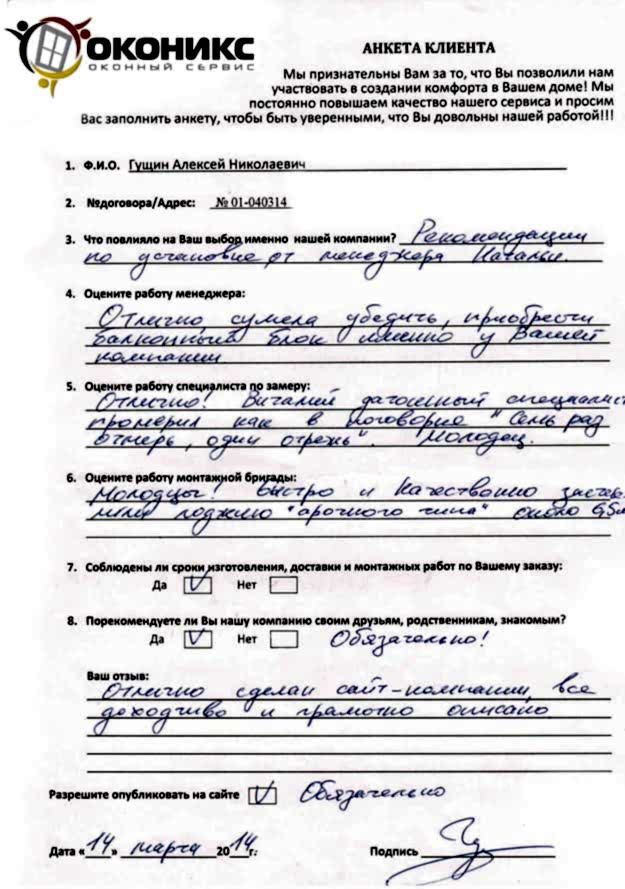 ОКОНИКС
ОКОННЫЙ СЕРВИС
АНКЕТА КЛИЕНТА
Мы признательны Вам за то, что Вы позволили нам
участвовать в создании комфорта в Вашем доме! Мы
постоянно повышаем качество нашего сервиса и просим
Вас заполнить анкету, чтобы быть уверенными, что Вы довольны нашей работой!!!
1. Ф.И.О. Гущин Алексей Николаевич
2. №договора/Адрес: № 01-040314
3. Что повлияло на Ваш выбор именно нашей компании? Рекомендации
по установке от менеджера Натальи.
4. Оцените работу менеджера:
Отлично, сумела убедить, приобрести
балконный блок именно у Вашей
компании.
5. Оцените работу специалиста по замеру:
Отлично! Виталий специалист
промерил как в поговорке "Семь раз
отмерь, один отрежь". Молодец.
6. Оцените работу монтажной бригады:
Молодцы! Быстро и Качественно
лоджию "арочного типа" около 6,5м
7. Соблюдены ли сроки изготовления, доставки и монтажных работ по Вашему заказу:
Да V Нет
8. Порекомендуете ли Вы нашу компанию своим друзьям, родственникам, знакомым?
Да V Нет Обязательно!
Ваш отзыв:
Отлично сделан сайт-компании, все
доходчиво и грамотно описано
Разрешите опубликовать на сайте V Обязательно
Дата «14» марта 2014г. Подпись